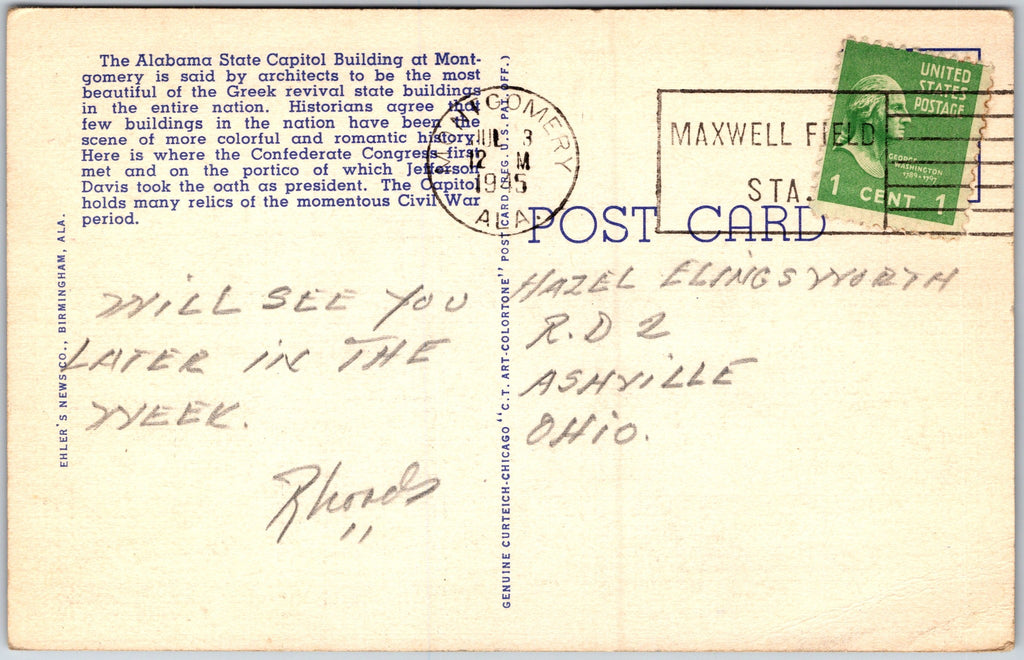 The Alabama State Capitol Building at Mont-
gomery is said by architects to be the most
beautiful of the Greek revival state buildings
in the entire nation. Historians agree that
few buildings in the nation have been the
scene of more colorful and romantic history.
Here is where the Confederate Congress first
met and on the portico of which Jefferson
Davis took the oath as president. The Capitol
holds many relics of the momentous Civil War
period.
EHLER'S NEWS CO., BIRMINGHAM, ALA.
WILL SEE YOU
LATER IN THE
WEEK.
Rhoads
"
GENUINE CURTEICH-CHICAGO "C.T. ART-COLORTONE" POST CARD (REG. U.S. PAT. OFF.)
MONTGOMERY
JUL 3
12 M
1945
ALA.
MAXWELL FIELD
STA.
UNITED
STATES
POSTAGE
GEORGE
WASHINGTON
1789-1797
1 CENT 1
POST CARD
HAZEL ELINGSWORTH
R.D 2
ASHVILLE
OHIO.